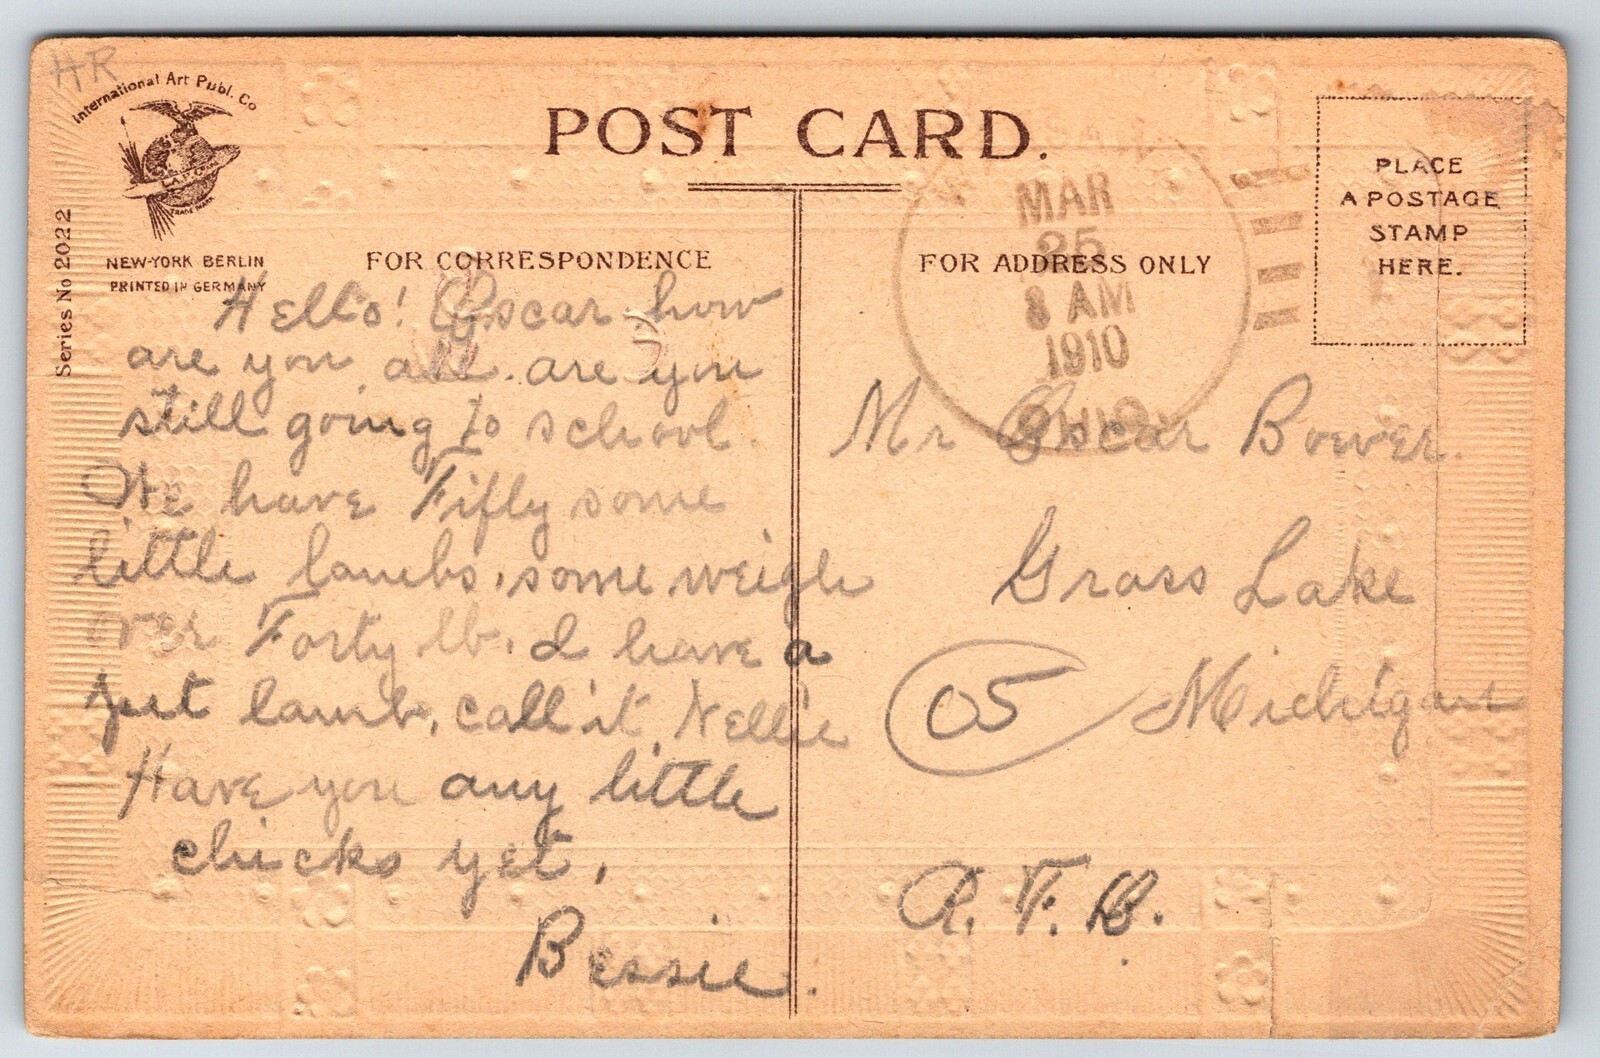 HR
International Art Publ. Co
I.A.P. CO.
TRADE MARK
NEW-YORK BERLIN
PRINTED IN GERMANY
Series No 2022
POST CARD.
FOR CORRESPONDENCE
Hello! Oscar how
are you all. are you
still going to school.
We have Fifty some
little lambs, some weigh
over Forty lb. I have a
pet lamb, call it Nellie
Have you any little
chicks yet,
Bessie.
FOR ADDRESS ONLY
MAR
25
8 AM
1910
OHIO
PLACE
A POSTAGE
STAMP
HERE.
Mr Oscar Bower.
Grass Lake
05 Michigan
R. F. D.